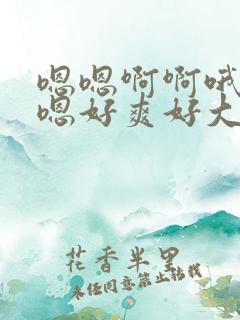 嗯嗯啊啊哦
嗯好爽好大
花香半里
未经同意禁止转载